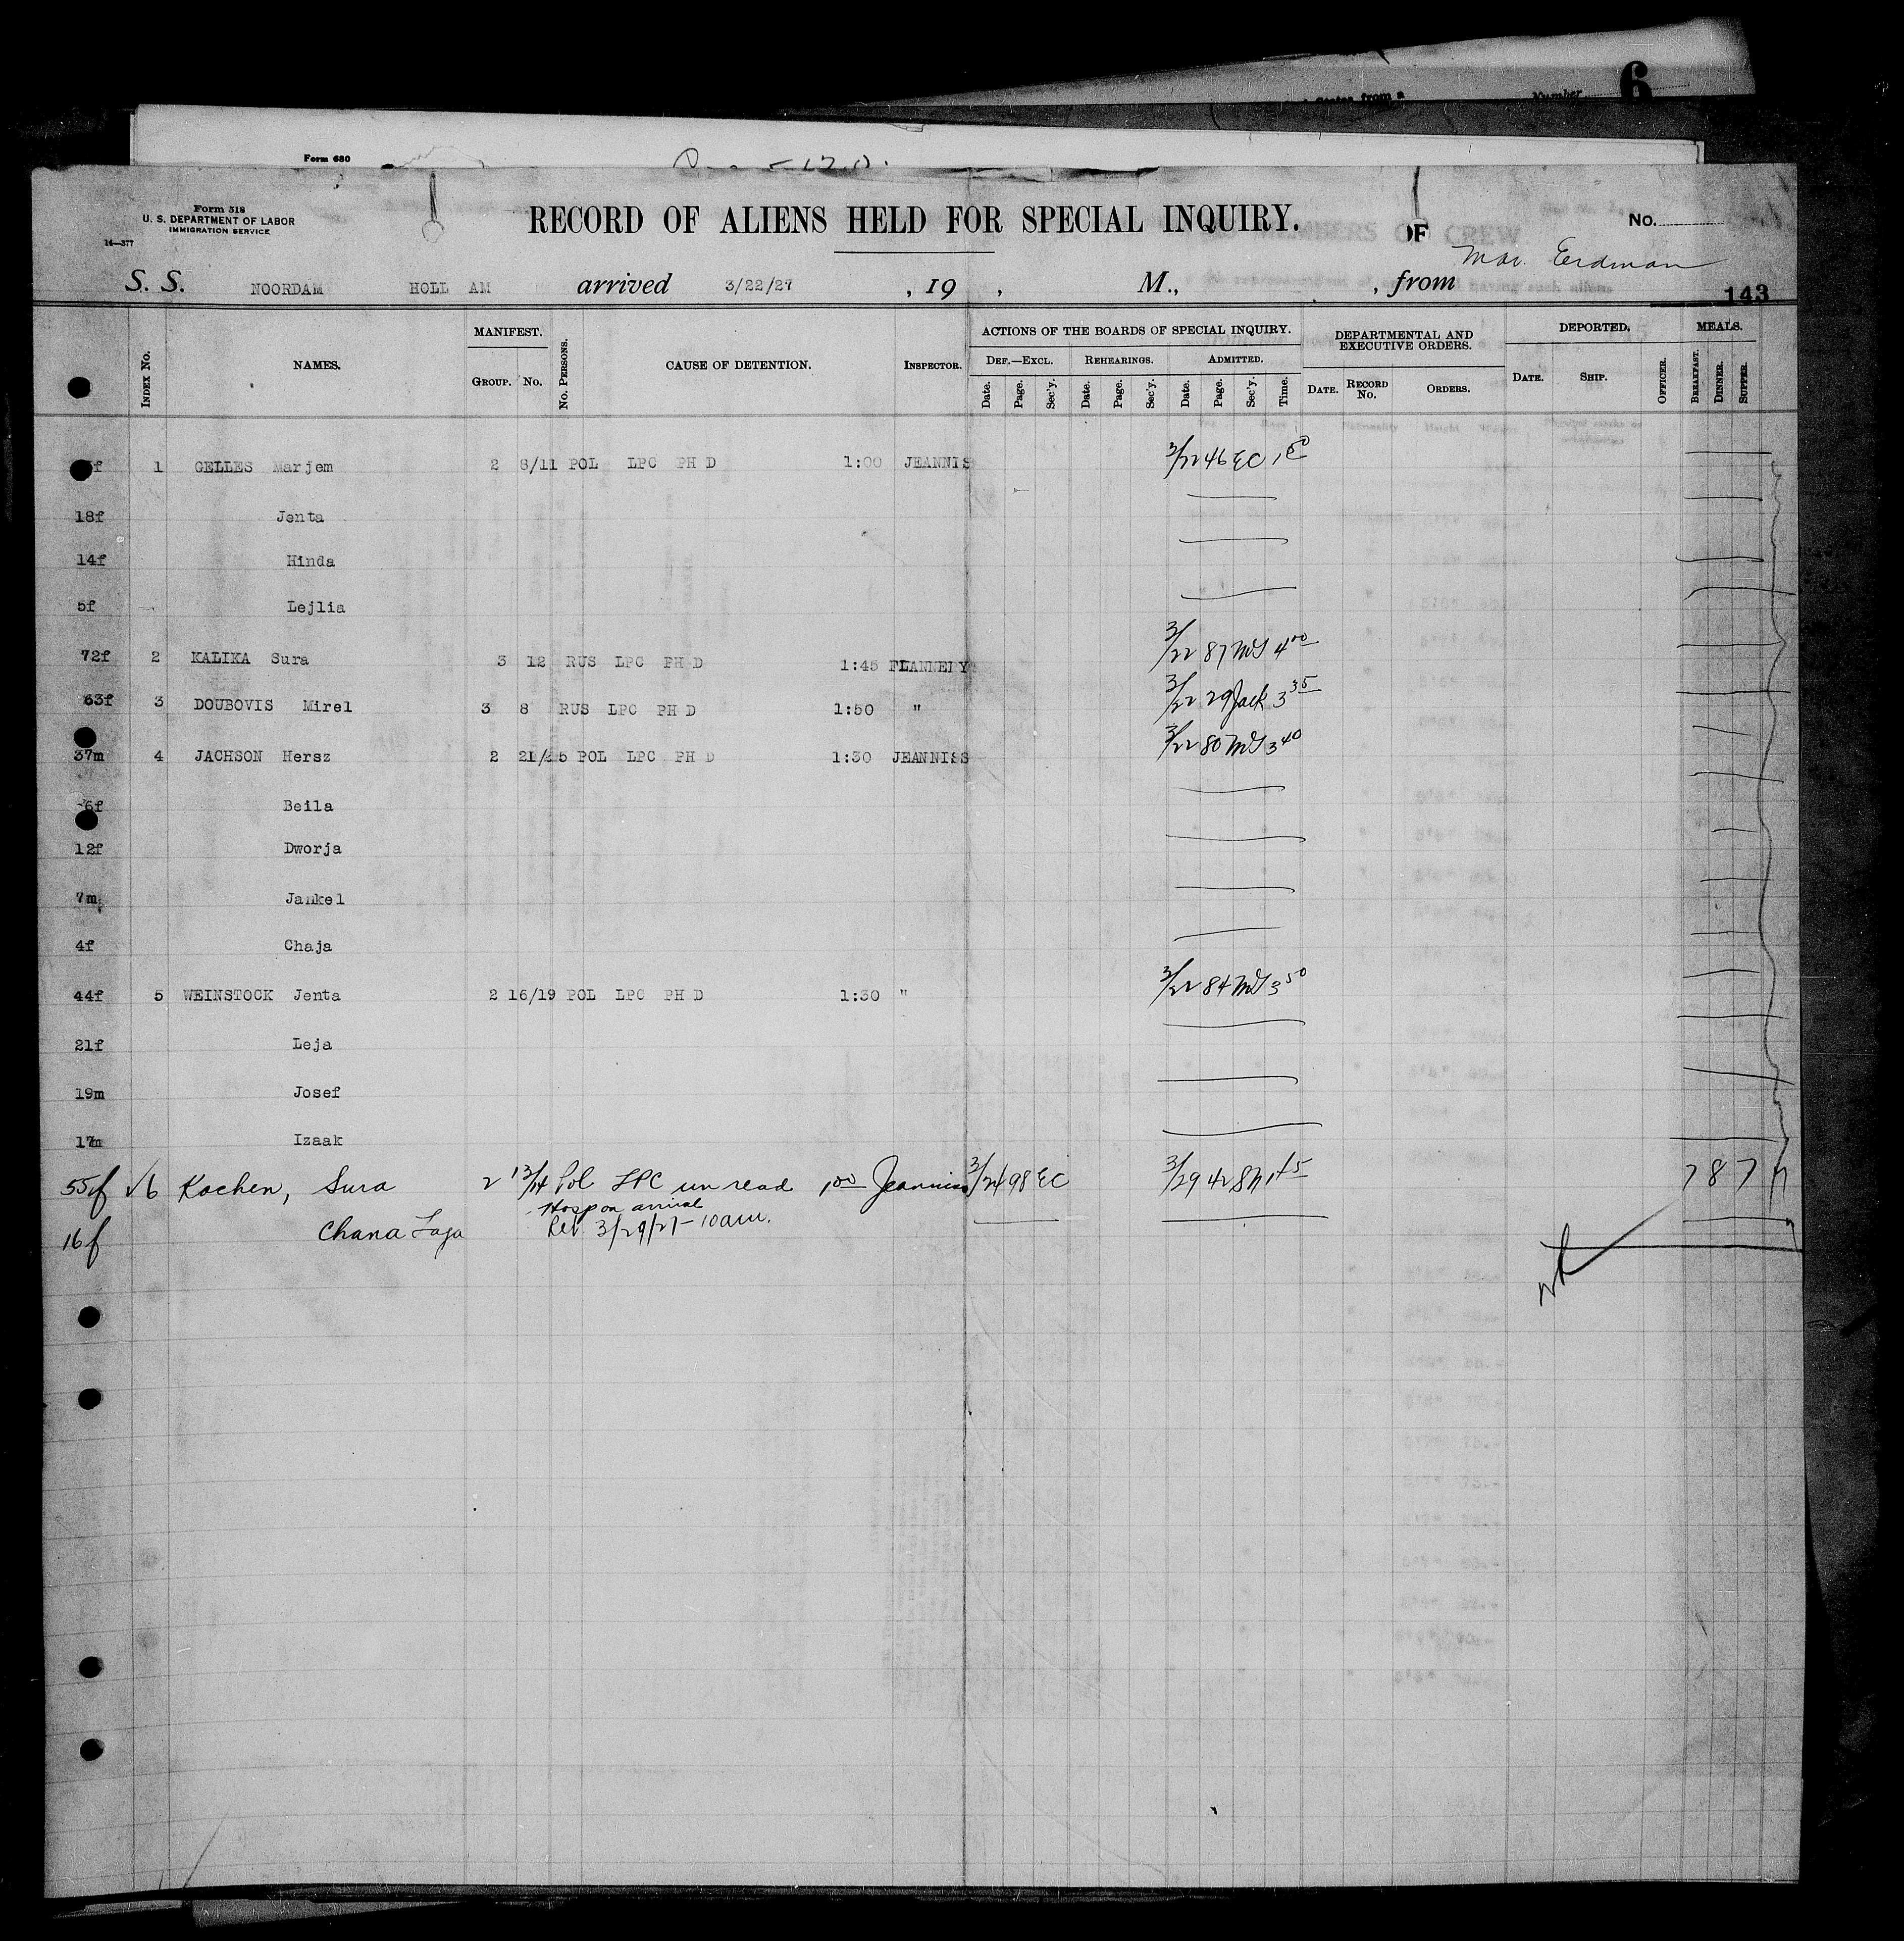 6
States from a
Number
Form 680
Form 518
U. S. DEPARTMENT OF LABOR
IMMIGRATION SERVICE
14—377
RECORD OF ALIENS HELD FOR SPECIAL INQUIRY.
OF
No.
Erdman
S. S. NOORDAM HOLL AM arrived 3/22/27 , 19 , M., , from
143
INDEX NO. NAMES. MANIFEST. GROUP. NO. NO. PERSONS. CAUSE OF DETENTION. INSPECTOR. ACTIONS OF THE BOARDS OF SPECIAL INQUIRY. DEF.—EXCL. Date. Page. Sec'y. REHEARINGS. Date. Page. Sec'y. ADMITTED. Date. Page. Sec'y. Time. DEPARTMENTAL AND EXECUTIVE ORDERS. DATE. RECORD NO. ORDERS. DEPORTED. DATE. SHIP. OFFICER. MEALS. BREAKFAST. DINNER. SUPPER.
1 GELLES Marjem 2 8/11 POL LPC PH D 1:00 JEANNIS 3/22 46 EC
18f Jenta
14f Hinda
5f Lejlia
72f 2 KALIKA Sura 3 12 RUS LPC PH D 1:45 FLANNERY 3/22 87 MS 4 00
63f 3 DOUBOVIS Mirel 3 8 RUS LPC PH D 1:50 " 3/22 29 Jack 3 35
37m 4 JACHSON Hersz 2 21/25 POL LPC PH D 1:30 JEANNISS 3/22 80 MS 3 40
6f Beila
12f Dworja
7m Jankel
4f Chaja
44f 5 WEINSTOCK Jenta 2 16/19 POL LPC PH D 1:30 " 3/22 84 MS 3 50
21f Leja
19m Josef
17m Izaak
55f √6 Kochen, Sura 2 13/14 Pol LPC un read 1 00 Jeanniss 3/24 98 EC 3/29 42 7 8 7
Hosp on arrival
16f Chana Faga Rel 3/29/27 - 10 am.